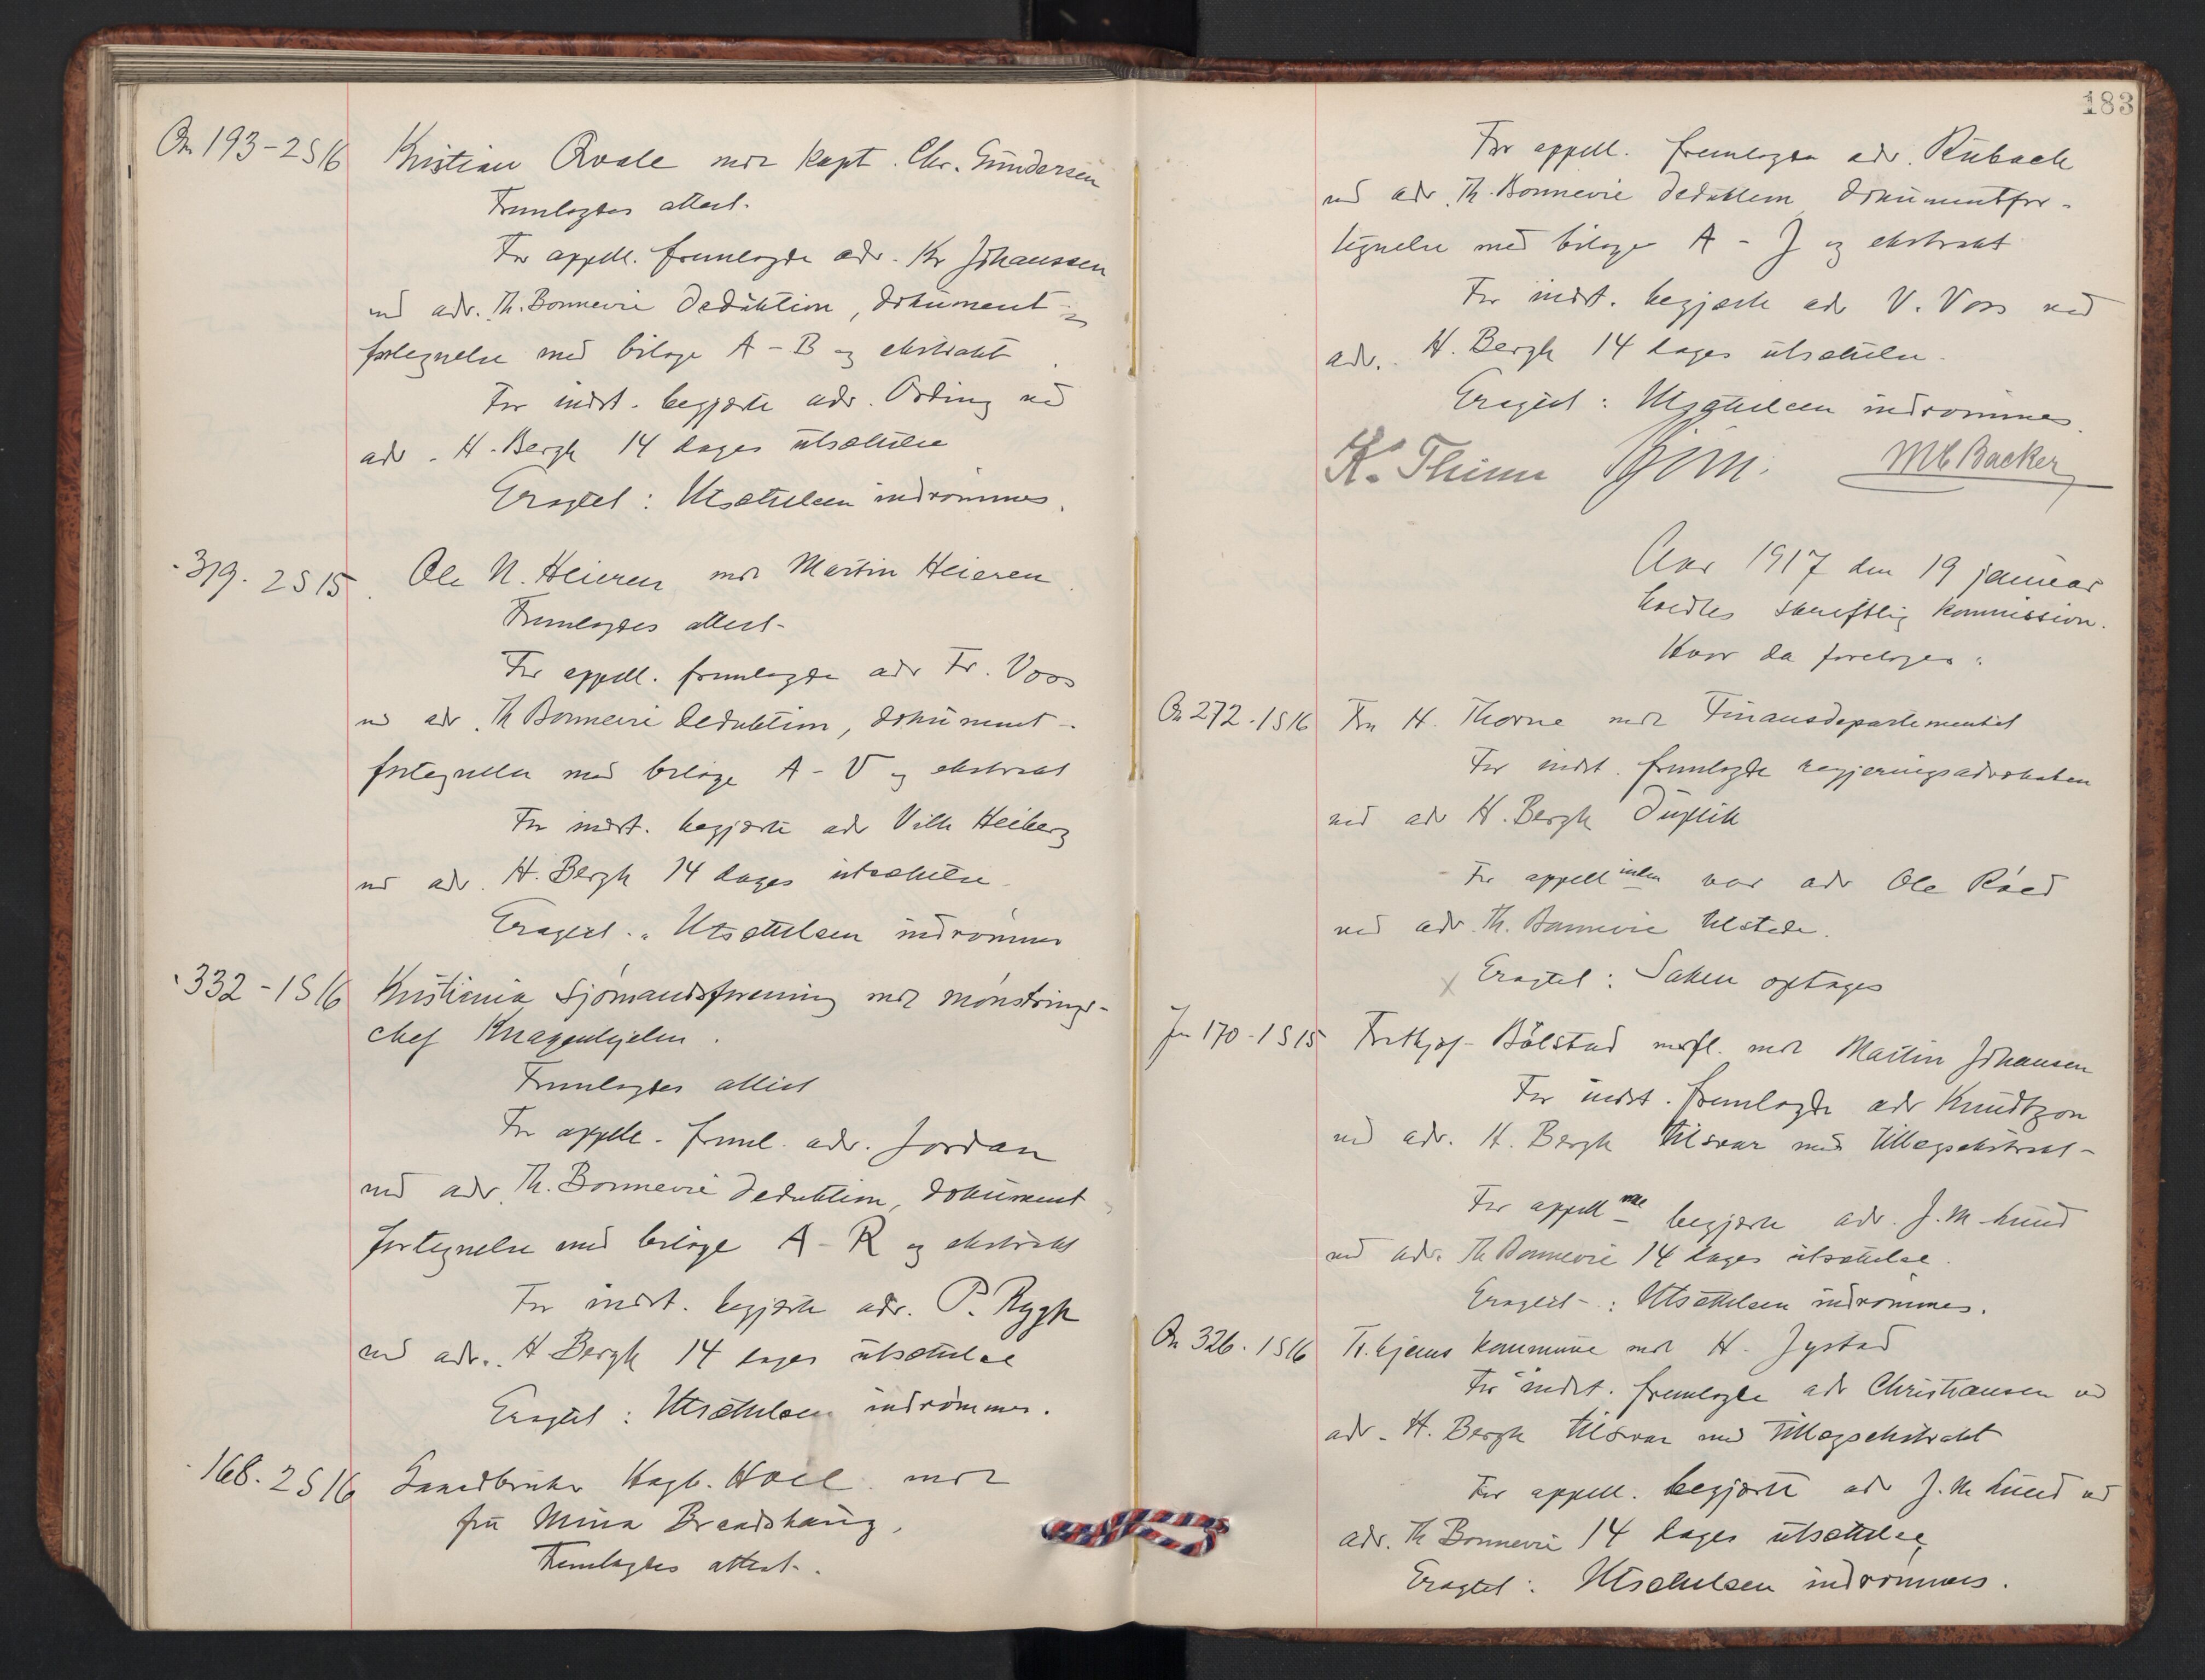 On 193-2S16 Kristian Qvale mot kapt. Chr. Gundersen
Fremlagdes attest.
For appell. fremlagde adv. Kr Johanssen
ved adv. Th. Bonnevie deduktion, dokument-
fortegnelse med bilage A-B og ekstrakt
For indst. begjærte adv. Ording ved
adv. H. Bergh 14 dages utsættelse
Eragtet: Utsættelsen indrømmes.
319. 2S15. Ole N. Heieren mot Martin Heieren
Fremlagdes attest-
For appell. fremlagde adv Fr. Voss
ved adv. Th Bonnevie deduktion, dokument-
fortegnelse med bilage A-V og ekstrakt
For indst. begjærte adv Vilh Heiberg
ved adv. H. Bergh 14 dages utsættelse
Eragtet: Utsættelsen indrømmes
332-1S16 Kristiania Sjømandsforening mot mønstrings-
chef Knagenhjelm.
Fremlagdes attest
For appell. freml. adv. Jordan
ved adv. Th. Bonnevie deduktion, dokument
fortegnelse med bilage A-R og ekstrakt
For indst. begjærte adv. P. Rygh
ved adv. H Bergh 14 dages utsættelse
Eragtet: Utsættelsen indrømmes.
168. 2S16 Gaardbruker Hagb. Holl mot
fru Mina Brandshaug.
Fremlagdes attest.
183
For appell. fremlagde adv. Rubach
ved adv. Th. Bonnevie deduktion dokumentfor-
tegnelse med bilage A-J og ekstrakt
For indst. begjærte adv V. Voss ved
adv. H. Bergh 14 dages utsættelse.
Eragtet: Utsættelsen indrømmes.
K. Thinn MC Backer
Aar 1917 den 19 januar
holdtes skriftlig kommission.
Hvor da foretoges:
On 272.1S16 Fru H. Thorne mot Finansdepartementet
For indst. fremlagde regjeringsadvokaten
ved adv H. Bergh Duplik
For appellinden var adv Ole Røed
ved adv. Th. Bonnevie tilstede.
x Eragtet: Saken optages
Jn 170-1S15 Frithjof Bølstad mfl. mot Martin Johansen
For indst. fremlagde adv Knudtzon
ved adv. H. Bergh tilsvar med tillægsekstrakt-
For appellne begjærte adv. J. M Lund
ved adv. Th Bonnevie 14 dages utsættelse.
Eragtet-: Utsættelsen indrømmes.
On 326.1S16 Tr.hjems kommune mot H. Jystad
For indst. fremlagde adv Christiansen ved
adv. H. Bergh tilsvar med tillægsekstrakt
For appell. begjærte adv J. M Lund ved
adv. Th Bonnevie 14 dages utsættelse
Eragtet: Utsættelsen indrømmes.